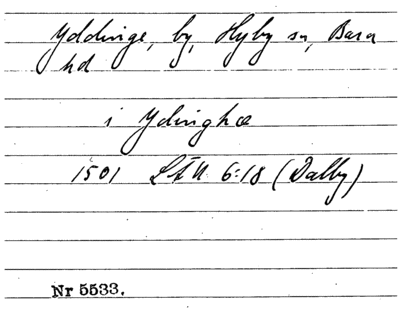 Yddinge, by, Hyby sn, Bara
hd
i Ydinghæ
1501 LÄU 6:18 (Dalby)
Nr 5533.